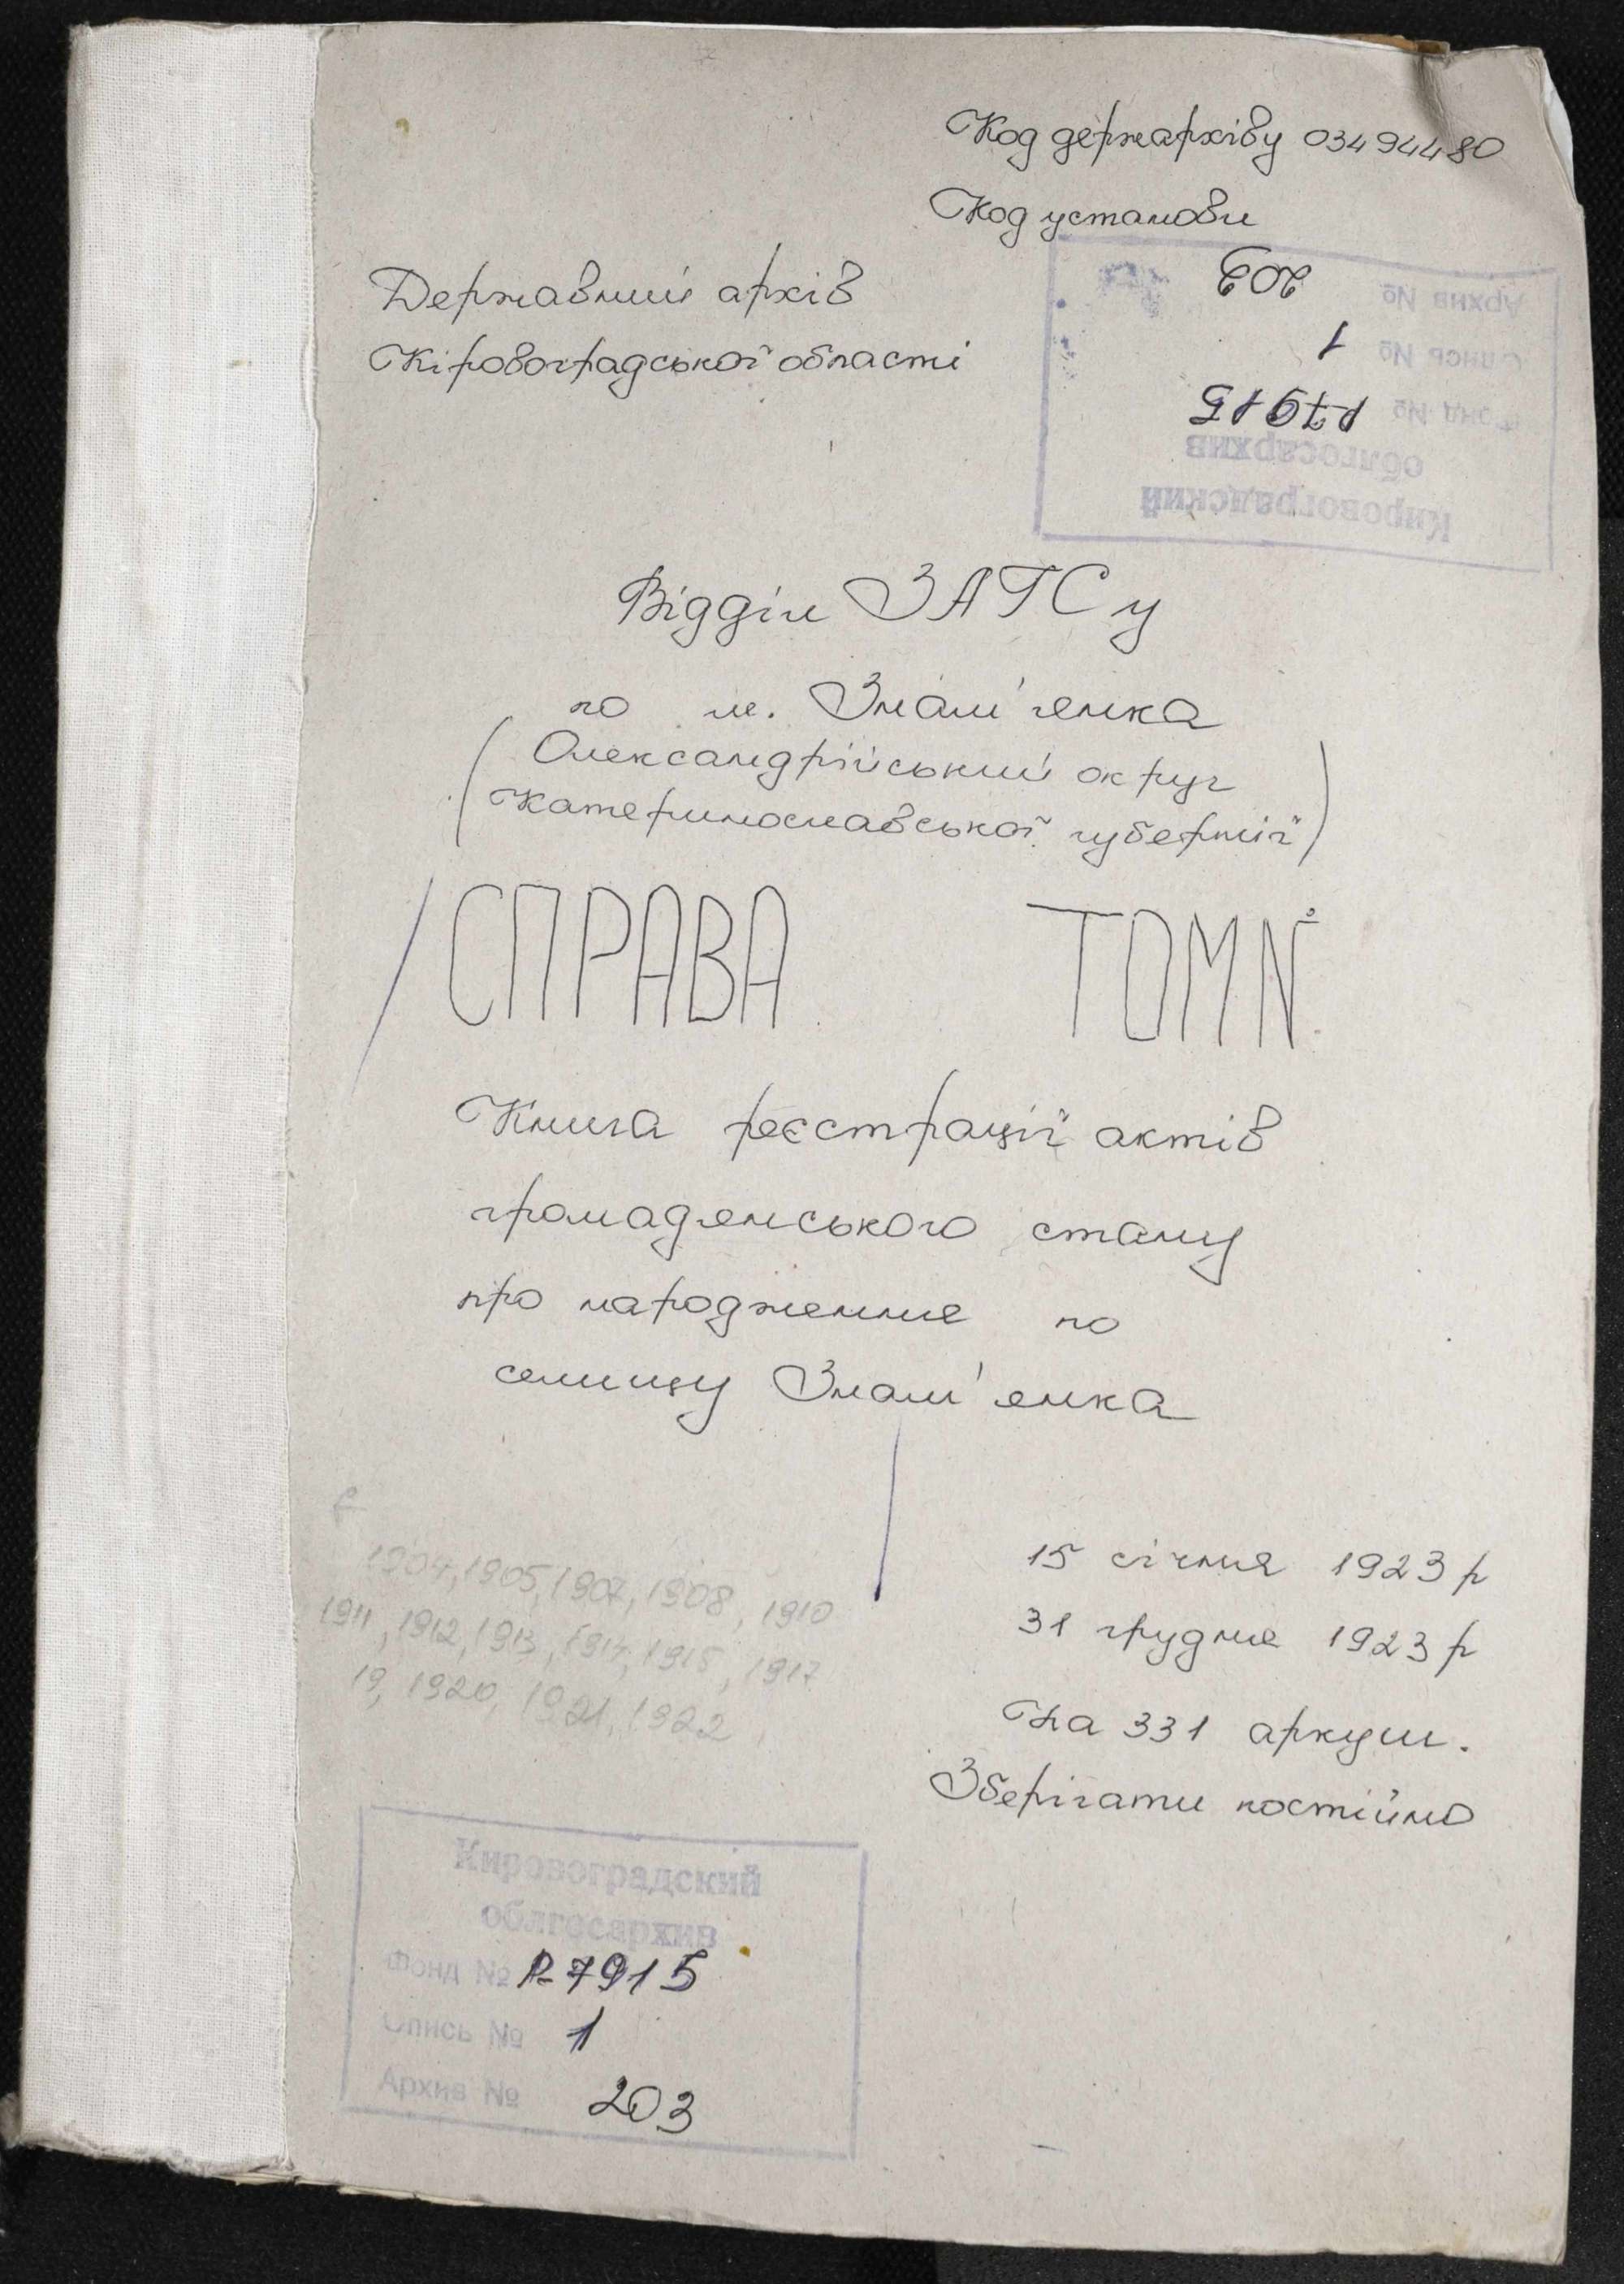 Код держархіву 03494480
Код установи
Державний архів
Кіровоградської області
Кировоградский
облгосархив
Фонд № Р-7915
Опись № 1
Архив № 203
Відділ ЗАГСу
по м. Знам'янка
(Олександрійський округ
Катеринославської губернії)
СПРАВА ТОМ №
Книга реєстрації актів
громадянського стану
про народження по
селищу Знам'янка
15 січня 1923 р
31 грудня 1923 р
На 331 аркуш.
Зберігати постійно
1904, 1905, 1907, 1908, 1910
1911, 1912, 1913, 1914, 1915, 1917
19, 1920, 1921, 1922
Кировоградский
облгосархив
Фонд № Р-7915
Опись № 1
Архив № 203